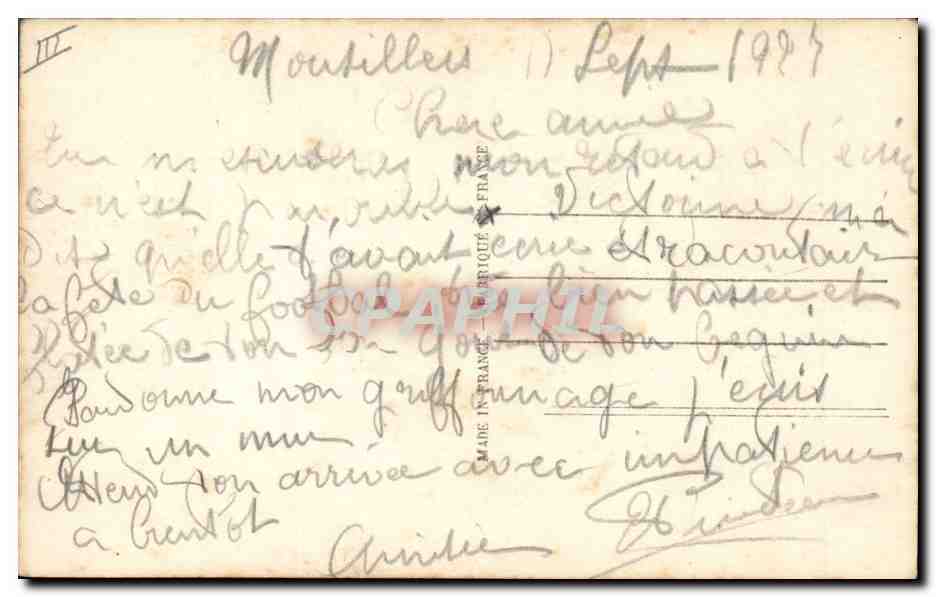 III
Montilliers 11 Sept 1927
Chère amie
Tu m'excuseras mon retard à t'écrire
ce n'est pas Victorine m'a
dit qu'elle t'avait écrie et racontait
la fête du football bien passée et
de ton de ton beguin
Pardonne mon griffonnage j'écris
sur un mur.
Attend ton arrivée avec impatience
a bientôt
Amitiés
MADE IN FRANCE — FABRIQUÉ EN FRANCE
CPAPHIL